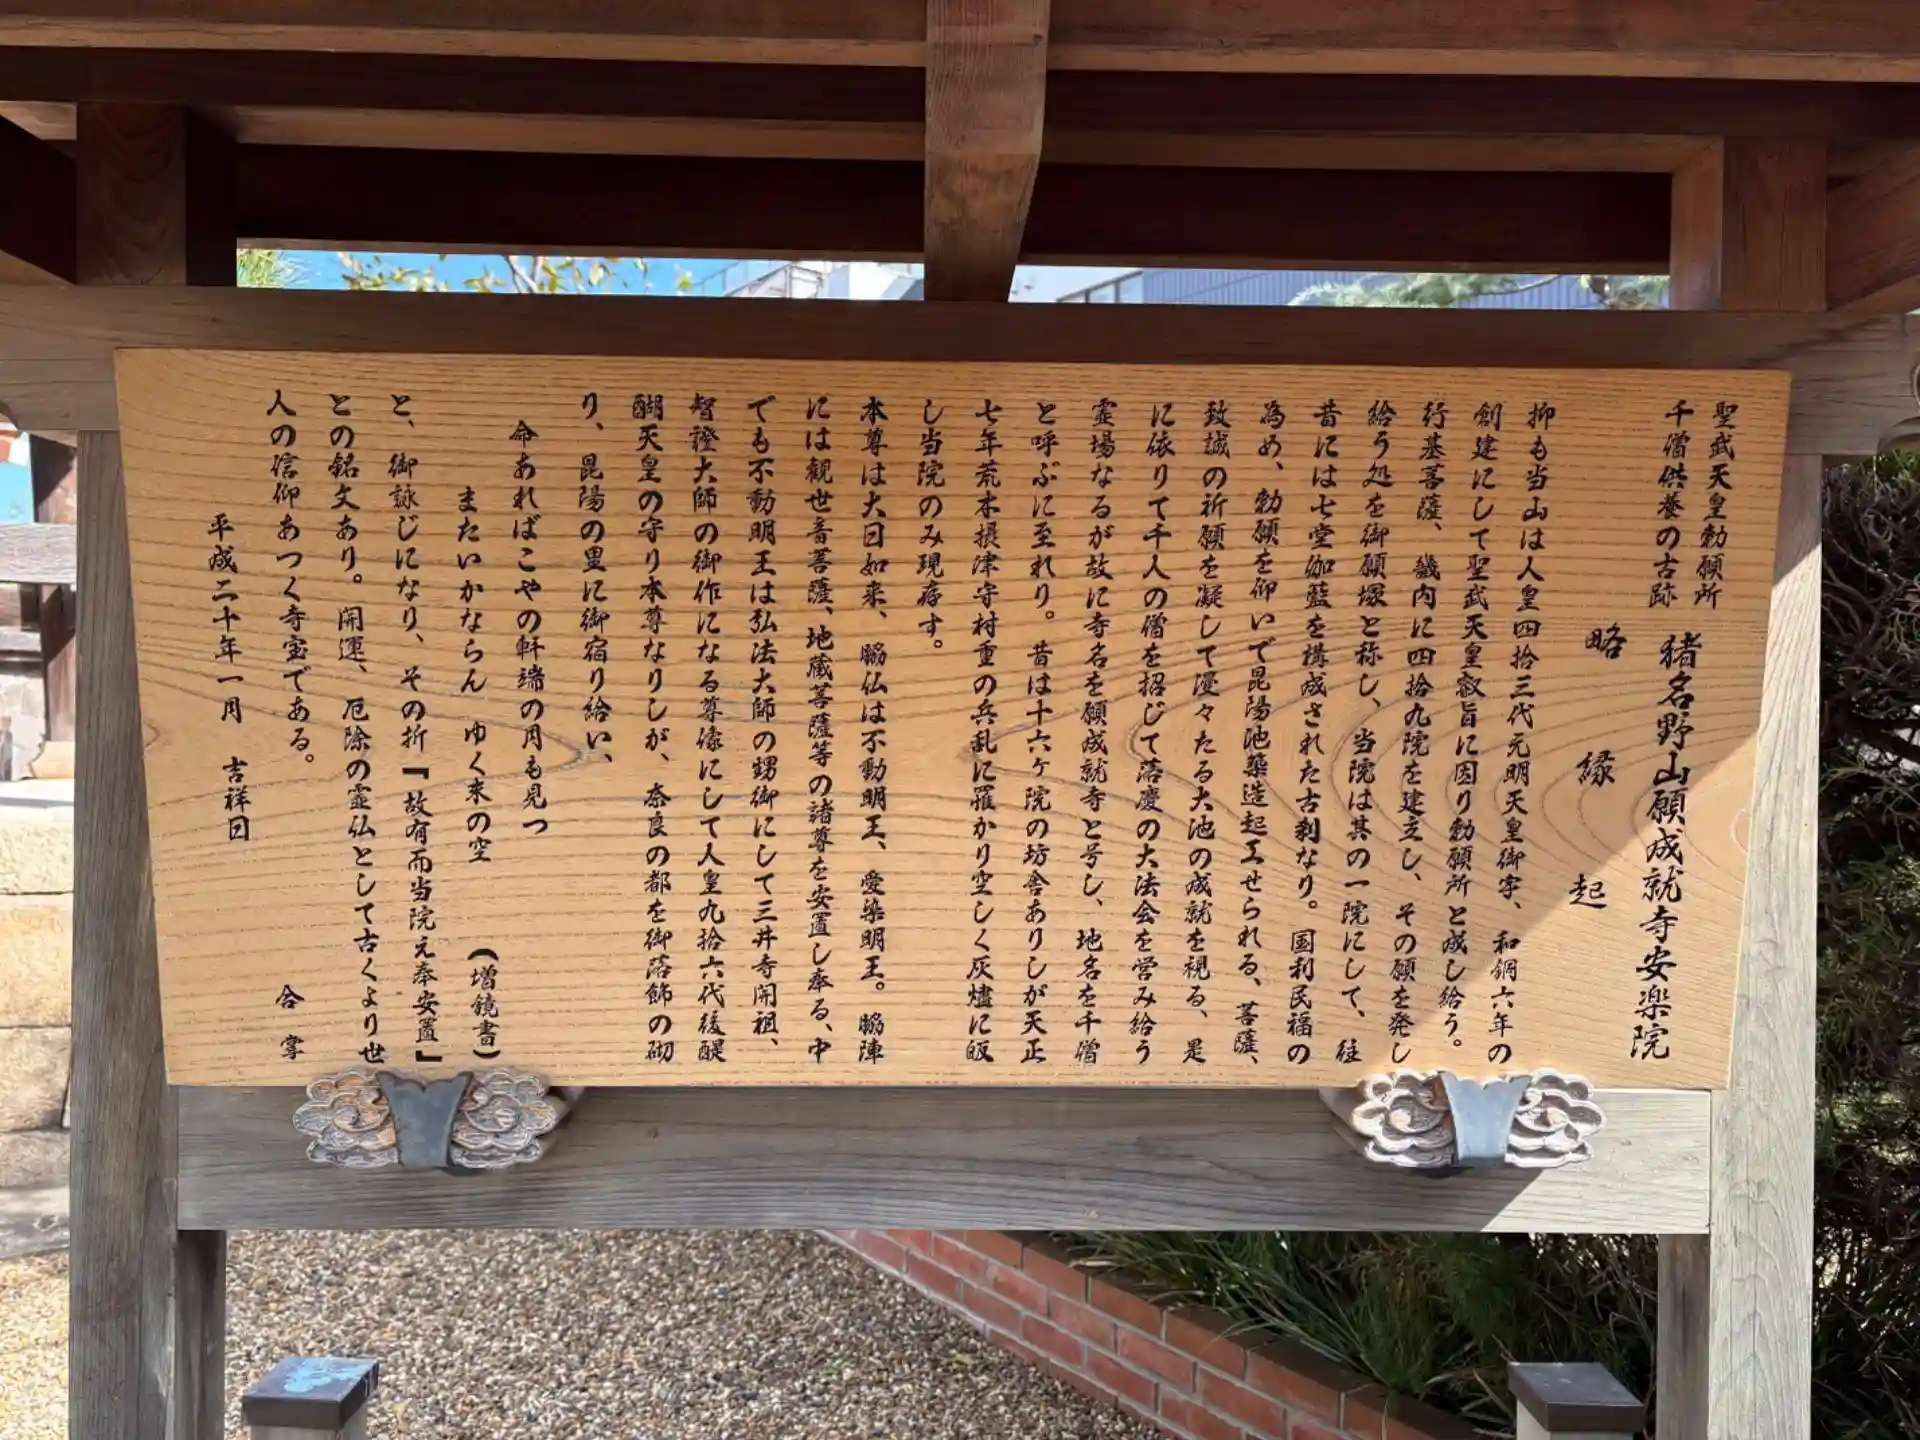 聖武天皇勅願所
千僧供養の古跡
猪名野山願成就寺安楽院
略縁起
抑も当山は人皇四拾三代元明天皇御宇、和銅六年の
創建にして聖武天皇叡旨に因り勅願所と成し給う。
行基菩薩、畿内に四拾九院を建立し、その願を発し
給う処を御願塚と称し、当院は其の一院にして、往
昔には七堂伽藍を構成された古刹なり。国利民福の
為め、勅願を仰いで昆陽池築造起工せられる、菩薩、
致誠の祈願を凝して漫々たる大池の成就を視る、是
に依りて千人の僧を招じて落慶の大法会を営み給う
霊場なるが故に寺名を願成就寺と号し、地名を千僧
と呼ぶに至れり。昔は十六ヶ院の坊舎ありしが天正
七年荒木摂津守村重の兵乱に罹かり空しく灰燼に皈
し当院のみ現存す。
本尊は大日如来、脇仏は不動明王、愛染明王。脇陣
には観世音菩薩、地蔵菩薩等の諸尊を安置し奉る、中
でも不動明王は弘法大師の甥御にして三井寺開祖、
智證大師の御作になる尊像にして人皇九拾六代後醍
醐天皇の守り本尊なりしが、奈良の都を御落飾の砌
り、昆陽の里に御宿り給い、
命あればこやの軒端の月も見つ
またいかならん ゆく末の空 (増鏡書)
と、御詠じになり、その折『故有而当院え奉安置』
との銘文あり。開運、厄除の霊仏として古くより世
人の信仰あつく寺宝である。
合掌
平成二十年一月 吉祥日